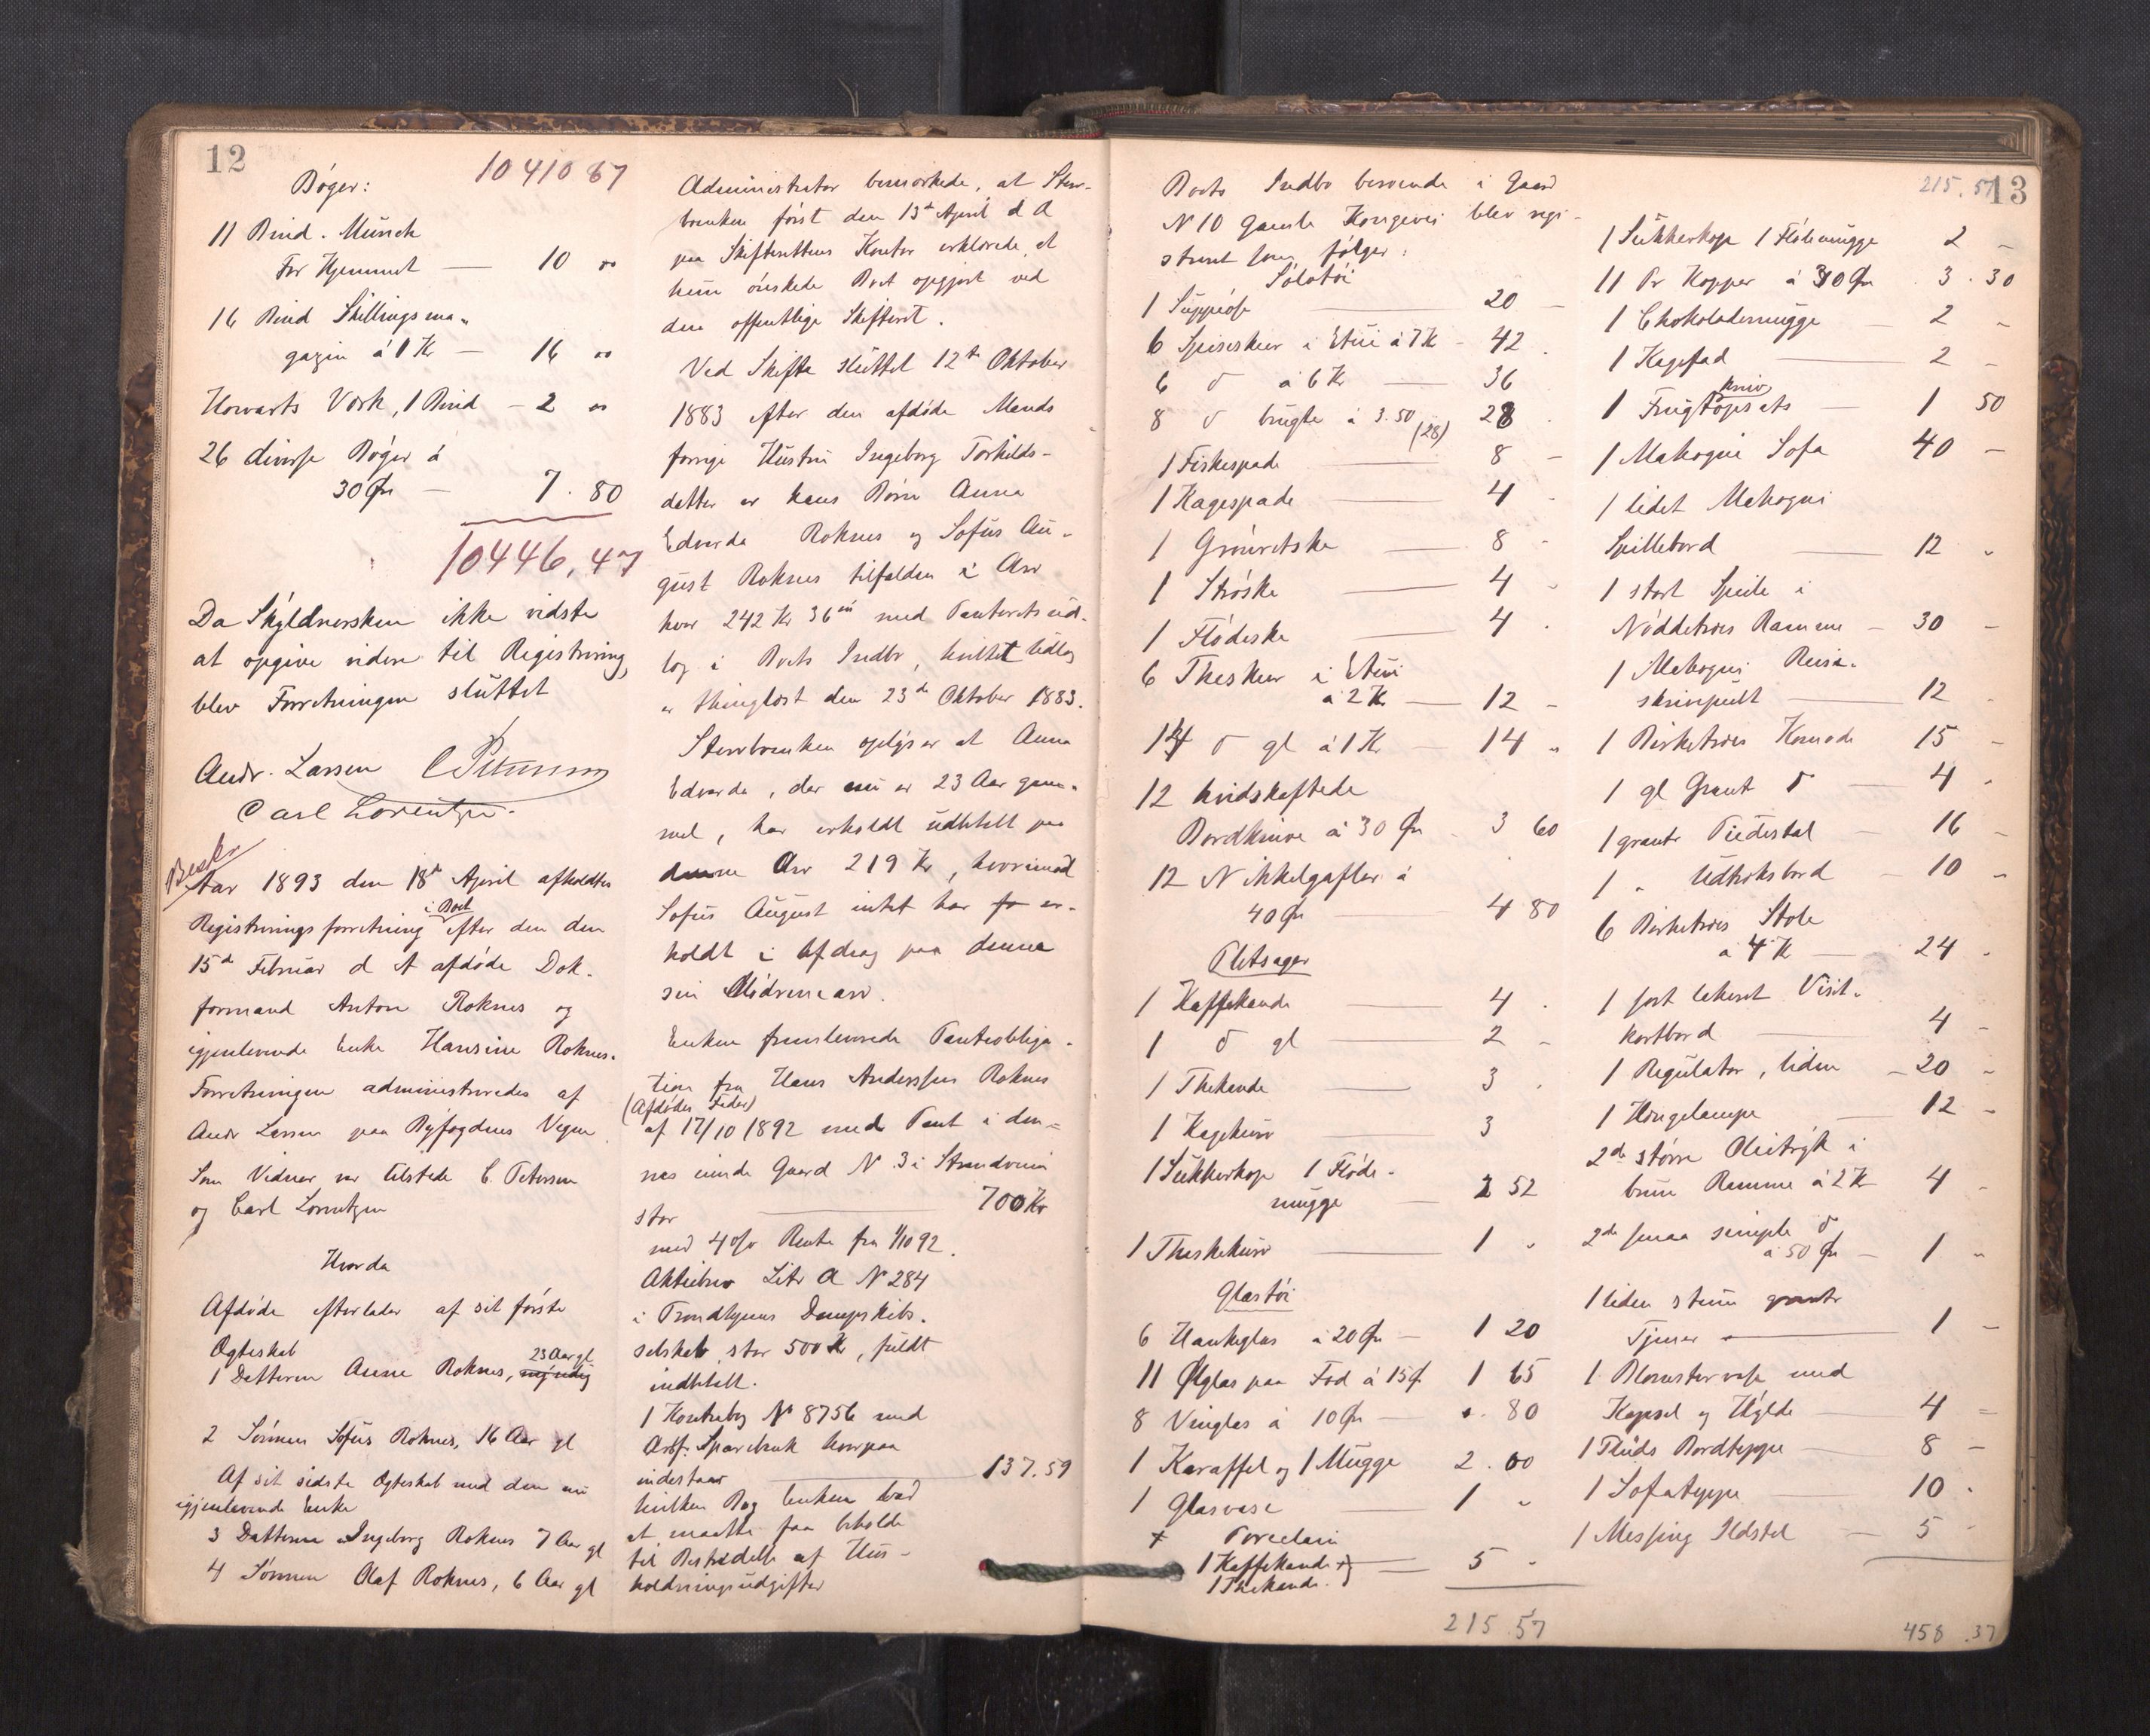 12
Bøger: 10410 67
11 Bind. Münch
For Hjemmet — 10 00
16 Bind Skillingsma-
gazin á 1 Kr — 16 00
Howarts Værk, 1 Bind — 2 00
26 diverse Bøger á
30 Øre — 7.80
10446,47
Da Skyldnersken ikke vidste
at opgive videre til Registrering,
blev Forretningen sluttet
Andr. Larsen C Petersen
Carl Lorentzen.
Beskr
Aar 1893 den 18de April afholdtes
Registreringsforretning i Boet efter den den
15de Februar d A afdøde Dok-
formand Anton Roknes og
igjenlevende Enke Hansine Roknes.
Forretningen administreredes af
Andr Larsen paa Byfogdens Vegne.
Som Vidner var tilstede C. Petersen
og Carl Lorentzen
Hvorda
Afdøde efterlader af sit første
Ægteskab
1 Datteren Anna Roknes, myndig 23 Aar gl
2 Sønnen Sofus Roknes, 16 Aar gl
Af sit sidste Ægteskab med den nu
igjenlevende Enke
3 Datteren Ingeborg Roknes 7 Aar gl
4 Sønnen Olaf Roknes, 6 Aar gl
Administrator bemærkede, at Stær-
boenken først den 13de April d A
paa Skifterettens Kontor erklærede, at
hun ønskede Boet opgjort ved
den offentlige Skifteret.
Ved Skifte sluttet 12te Oktober
1883 efter den afdøde Mands
forrige Hustru Ingeborg Torkilds-
datter er hans Børn Anna
Edvarda Roknes og Sofus Au-
gust Roknes tilfalden i Arv
hver 242 Kr 36 øre med Panteretsud-
læg i Boets Indbo, hvilket Udlæg
er thinglæst den 23de Oktober 1883.
Stervboenken oplyser at Anna
Edvarda, der nu er 23 Aar gam-
mel, har erholdt udbetalt paa
denne Arv 219 Kr, hvorimod
Sofus August intet har fa er-
holdt i Afdrag paa denne
sin Mødrenearv.
Enken fremleverede Panteobliga-
tion fra Hans Anderssen Roknes
(Afdødes Fader)
af 17/10 1892 med Pant i den-
nes iende Gaard N 3 i Strandveien
stor — 700 Kr
med 4 o/o Rente fra 1/10 92.
Aktiebrev Litr A N 284
i Trondhjems Dampskibs-
selskab stor 500 Kr, fuldt
indbetalt.
1 Kontrabog N 8756 med
Arbf. Sparebank hvorpaa
indestaar — 137.59
hvilken Bog Enken bad
at maatte faa beholde
til Bestridelse af Hus-
holdningsudgifter
Boets Indbo beroende i Gaard
N 10 Gamle Kongevei blev regi-
streret som følger:
Sølvtøi
1 Suppeøse — 20 —
6 Spiseskeer i Etui á 7 Kr — 42 .
6 do á 6 Kr — 36
8 do brugte á 3.50 (28) 28 .
1 Fiskespade — 8 —
1 Kagespade — 4 -
1 Grønretske — 8 -
1 Strøske — 4 -
1 Flødeske — 4 .
6 Theskeer i Etui
á 2 Kr — 12 -
14 do gl á 1 Kr 14 "
12 hvidskaftede
Bordknive á 30 Øre - 3 60
12 Nikkelgafler á
40 Øre — 4 80
Pletsager
1 Kaffekande — 4 .
1 do gl — 2 -
1 Thekande — 3 .
1 Kagekurv — 3
1 Sukkerkop 1 Fløde-
mugge — 2 52
1 Theskekurv — 1 "
Glastøi
6 Hankeglas á 20 Øre — 1 20
11 Ølglas paa Fod á 15 Ø. 1 65
8 Vinglas á 10 Øre — . 80
1 Karaffel og 1 Mugge 2.00
1 Glasvase — 1 "
+ Porcelain
1 Kaffekande og
1 Thekande. — 5 -
215.57
215.57 13
1 Sukkerkop 1 Flødemugge 2 -
11 Pr Kopper á 30 Øre . 3.30
1 Chokolademugge — 2 -
1 Kagefad — 2 -
1 Frugtopsats kniv — 1 50
1 Mahogni Sofa 40 —
1 lidet Mahogni
Spillebord — 12 "
1 stort Speile i
Nøddetræes Ramme — 30 —
1 Mahogni Reise-
skrivpult — 12 -
1 Birketræes Komode 15 —
1 gl Grant do — 4 -
1 grantr Piedestal — 16 —
1 " Udtræksbord — 10 "
6 Birketræes Stole
á 4 Kr — 24 .
1 sort lakeret Visit-
kortbord — 4 -
1 Regulator, liden — 20 -
1 Hængelampe — 12 -
2de større Olietryk i
brun Ramme á 2 Kr 4 -
2de smaa simple do
á 50 Øre — 1 "
1 liden stum grantr
Tjener — 1 —
1 Blomstervase med
Kapsel og Hylde — 4 =
1 Pluds Bordteppe — 8 —
1 Sofateppe — 10 .
1 Messing Ildstel — 5 -
458.37